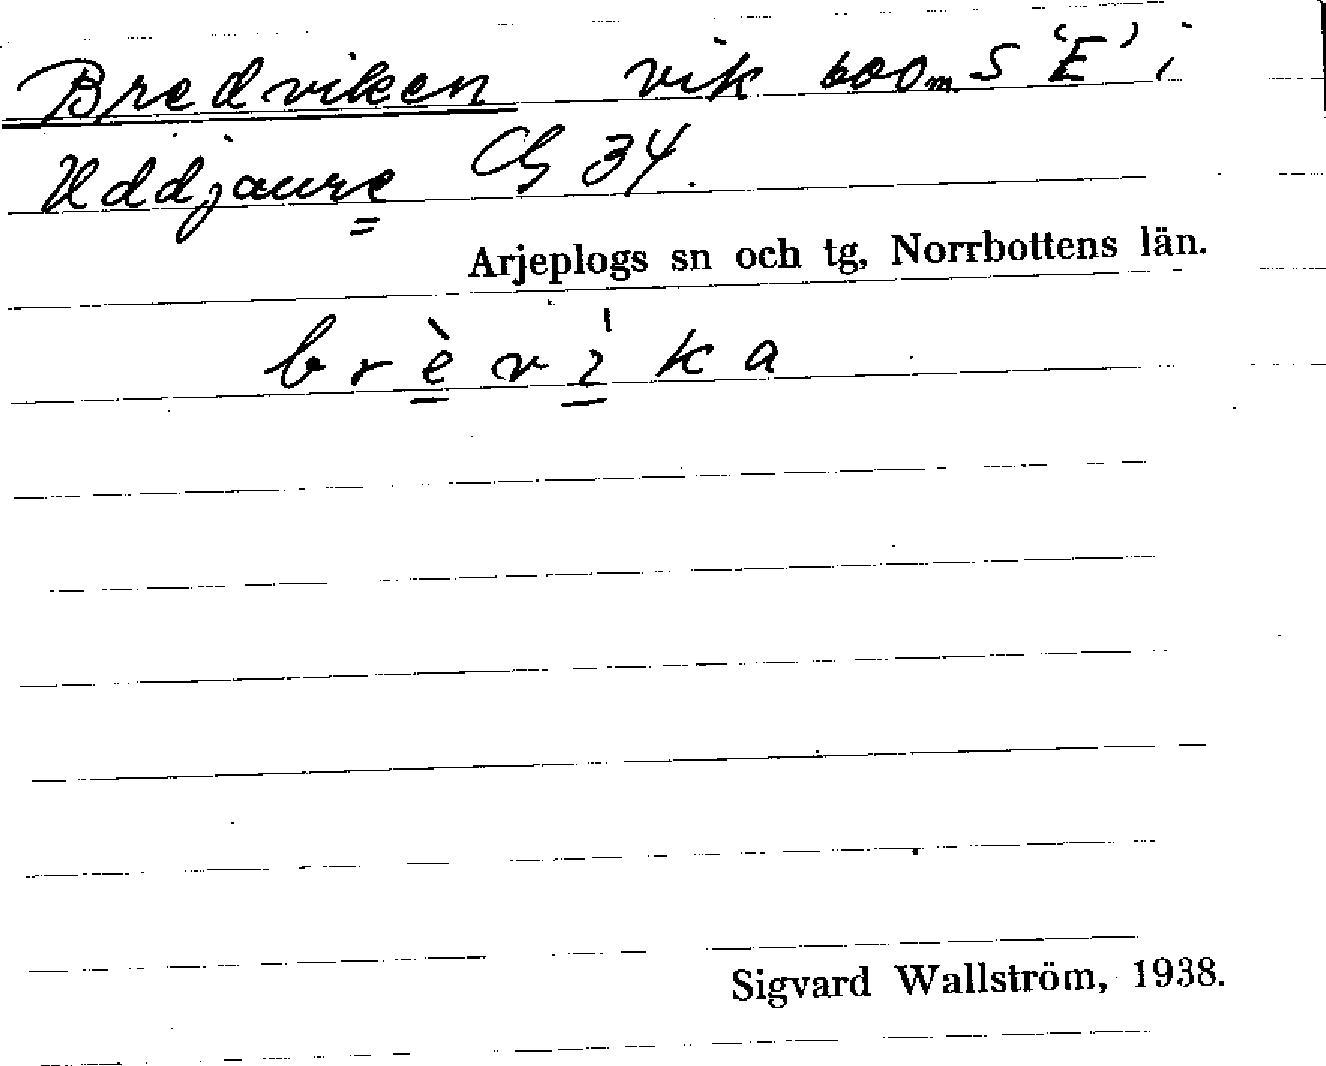 Bredviken vik 600m S 'E' i
Uddjaure Cg 34.
Arjeplogs sn och tg, Norrbottens län.
brèvíka
Sigvard Wallström, 1938.